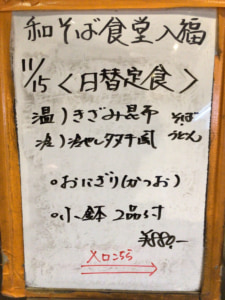 和そば食堂 入福
11/15 〈日替定食〉
温)きざみ昆布 そば
冷)冷やしタヌキ風 うどん
○おにぎり(かつお)
○小鉢 2品付
¥880.-
入口こちら